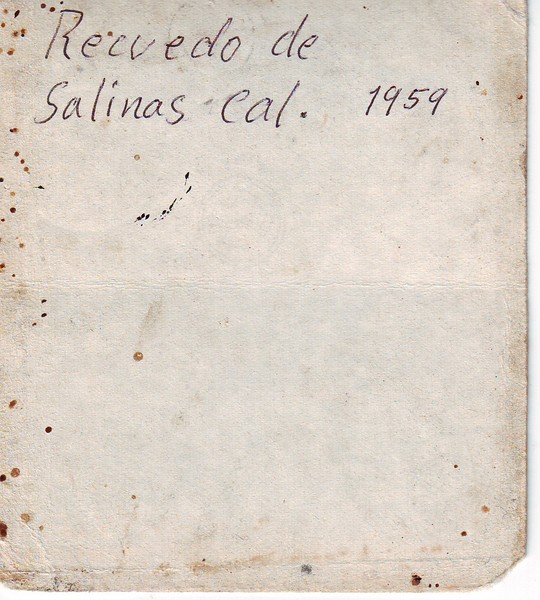 Recuedo de
Salinas Cal. 1959